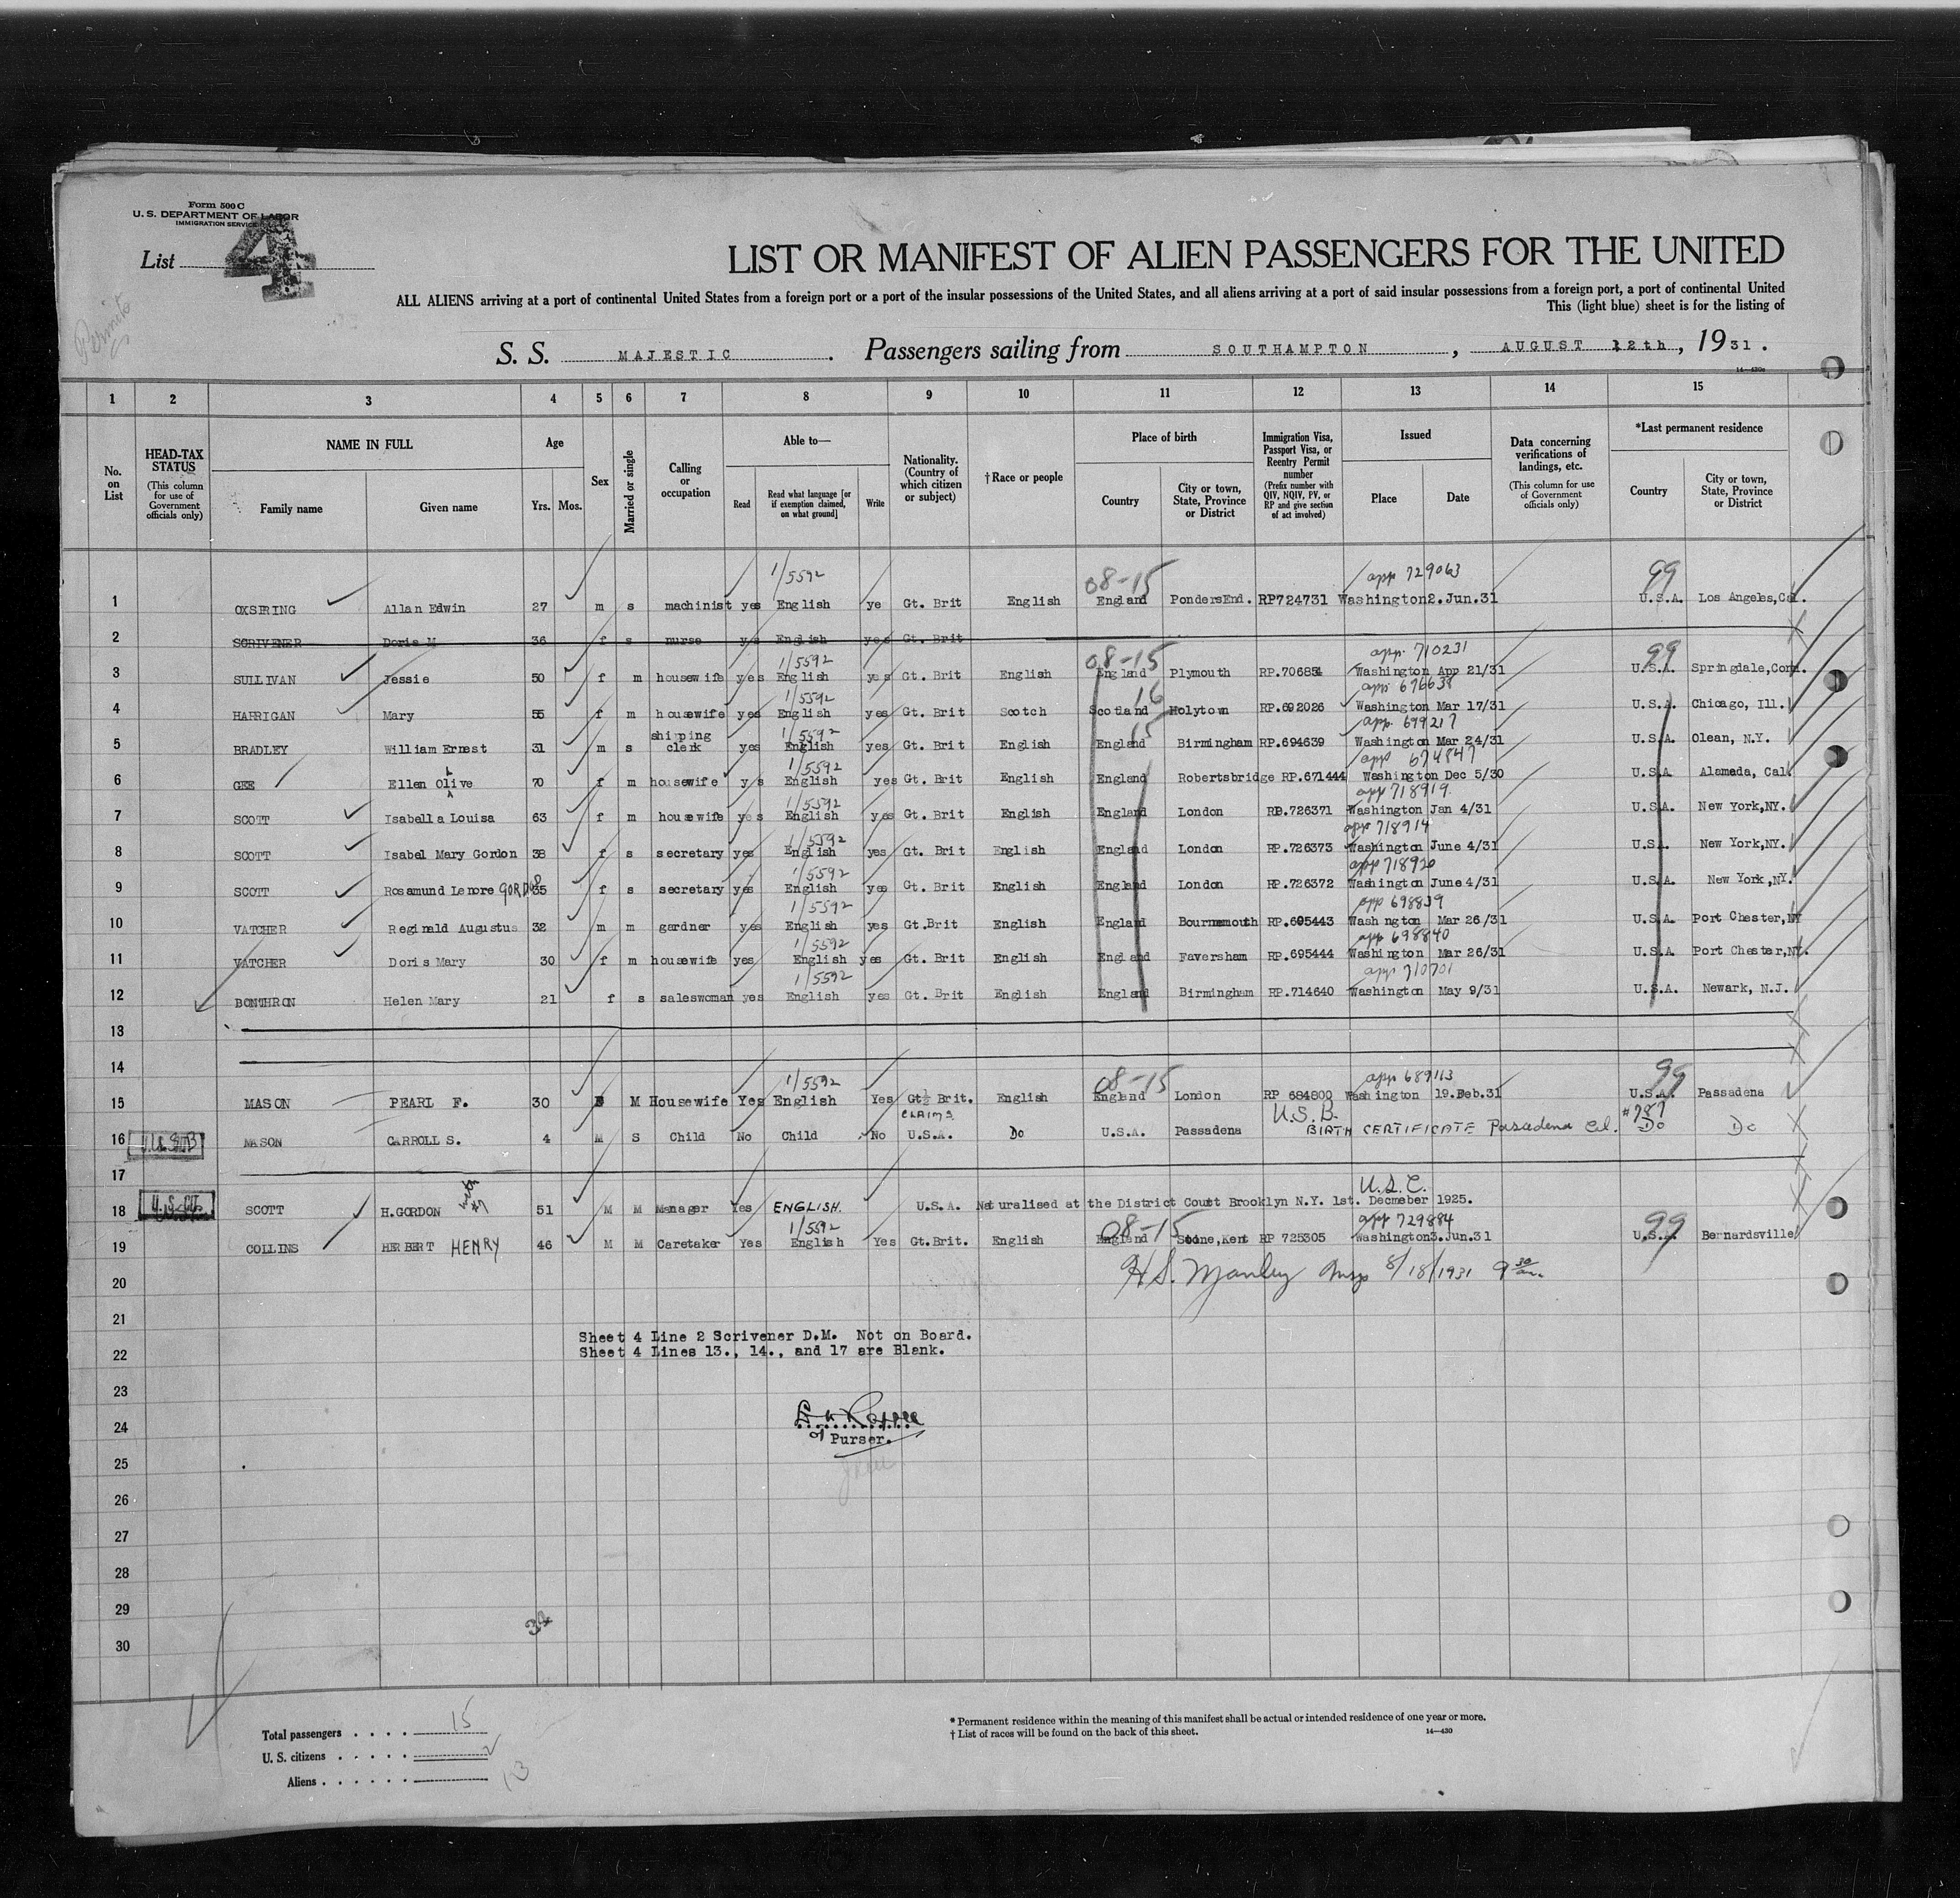 Form 500 C
U. S. DEPARTMENT OF LABOR
IMMIGRATION SERVICE
List 4
LIST OR MANIFEST OF ALIEN PASSENGERS FOR THE UNITED
ALL ALIENS arriving at a port of continental United States from a foreign port or a port of the insular possessions of the United States, and all aliens arriving at a port of said insular possessions from a foreign port, a port of continental United
This (light blue) sheet is for the listing of
Permits
S. S. MAJESTIC . Passengers sailing from SOUTHAMPTON , AUGUST 12th, 1931.
14—430c
1 2 3 4 5 6 7 8 9 10 11 12 13 14 15
No. on List
HEAD-TAX STATUS (This column for use of Government officials only)
NAME IN FULL Family name Given name
Age Yrs. Mos.
Sex
Married or single
Calling or occupation
Able to— Read Read what language [or if exemption claimed, on what ground] Write
Nationality. (Country of which citizen or subject)
†Race or people
Place of birth Country City or town, State, Province or District
Immigration Visa, Passport Visa, or Reentry Permit number (Prefix number with QIV, NQIV, PV, or RP and give section of act involved)
Issued Place Date
Data concerning verifications of landings, etc. (This column for use of Government officials only)
*Last permanent residence Country City or town, State, Province or District
1/5592 08-15 app 729063 99
1 OXSPRING Allan Edwin 27 m s machinist yes English ye Gt. Brit English England PondersEnd. RP724731 Washington 2.Jun.31 U.S.A. Los Angeles,Cal.
2 SCRIVENER Doris M 36 f s nurse yes English yes Gt. Brit
1/5592 08-15 app. 710231 99
3 SULLIVAN Jessie 50 f m housewife yes English yes Gt. Brit English England Plymouth RP.706854 Washington App 21/31 U.S.A. Springdale,Conn.
1/5592 16 app 696638
4 HARRIGAN Mary 55 f m housewife yes English yes Gt. Brit Scotch Scotland Holytown RP.692026 Washington Mar 17/31 U.S.A. Chicago, Ill.
1/5592 15 app. 699217
5 BRADLEY William Ernest 31 m s shipping clerk yes English yes Gt. Brit English England Birmingham RP.694639 Washington Mar 24/31 U.S.A. Olean, N.Y.
1/5592 app 674847
6 GEE Ellen Olive 70 f m housewife yes English yes Gt. Brit English England Robertsbridge RP.671444 Washington Dec 5/30 U.S.A. Alameda, Cal.
1/5592 app 718919
7 SCOTT Isabella Louisa 63 f m housewife yes English yes Gt. Brit English England London RP.726371 Washington Jan 4/31 U.S.A. New York,NY.
1/5592 app 718914
8 SCOTT Isabel Mary Gordon 38 f s secretary yes English yes Gt. Brit English England London RP.726373 Washington June 4/31 U.S.A. New York,NY.
1/5592 app 718920
9 SCOTT Rosamund Lenore GORDON 35 f s secretary yes English yes Gt. Brit English England London RP.726372 Washington June 4/31 U.S.A. New York,NY.
1/5592 app 698839
10 VATCHER Reginald Augustus 32 m m gardner yes English yes Gt.Brit English England Bournemouth RP.695443 Washington Mar 26/31 U.S.A. Port Chester,NY
1/5592 app 698840
11 VATCHER Doris Mary 30 f m housewife yes English yes Gt. Brit English England Faversham RP.695444 Washington Mar 26/31 U.S.A. Port Chester,NY.
1/5592 app 710701
12 BONTHRON Helen Mary 21 f s saleswoman yes English yes Gt. Brit English England Birmingham RP.714640 Washington May 9/31 U.S.A. Newark, N.J.
13
14
1/5592 08-15 app 689113 99
15 MASON PEARL F. 30 M Housewife Yes English Yes Gt. Brit. English England London RP 684800 Washington 19.Feb.31 U.S.A. Passadena
CLAIMS U.S.B. #787
16 MASON CARROLL S. 4 M S Child No Child No U.S.A. Do U.S.A. Passadena BIRTH CERTIFICATE Pasadena Cal. Do Do
17
U.S.C.
18 SCOTT H.GORDON 51 M M Manager Yes ENGLISH. U.S.A. Naturalised at the District Court Brooklyn N.Y. 1st. Decmeber 1925.
1/5592 08-15 app 729884 99
19 COLLINS HERBERT HENRY 46 M M Caretaker Yes English Yes Gt.Brit. English England Stone,Kent RP 725305 Washington 3.Jun.31 U.S.A. Bernardsville
20 H.S. Manley Insp 8/18/1931 9 30 am
21
Sheet 4 Line 2 Scrivener D.M. Not on Board.
22 Sheet 4 Lines 13., 14., and 17 are Blank.
23
24
Purser.
25
26
27
28
29
34
30
Total passengers . . . . 15
U. S. citizens . . . . . 2
Aliens . . . . . . 13
* Permanent residence within the meaning of this manifest shall be actual or intended residence of one year or more.
† List of races will be found on the back of this sheet.
14—430